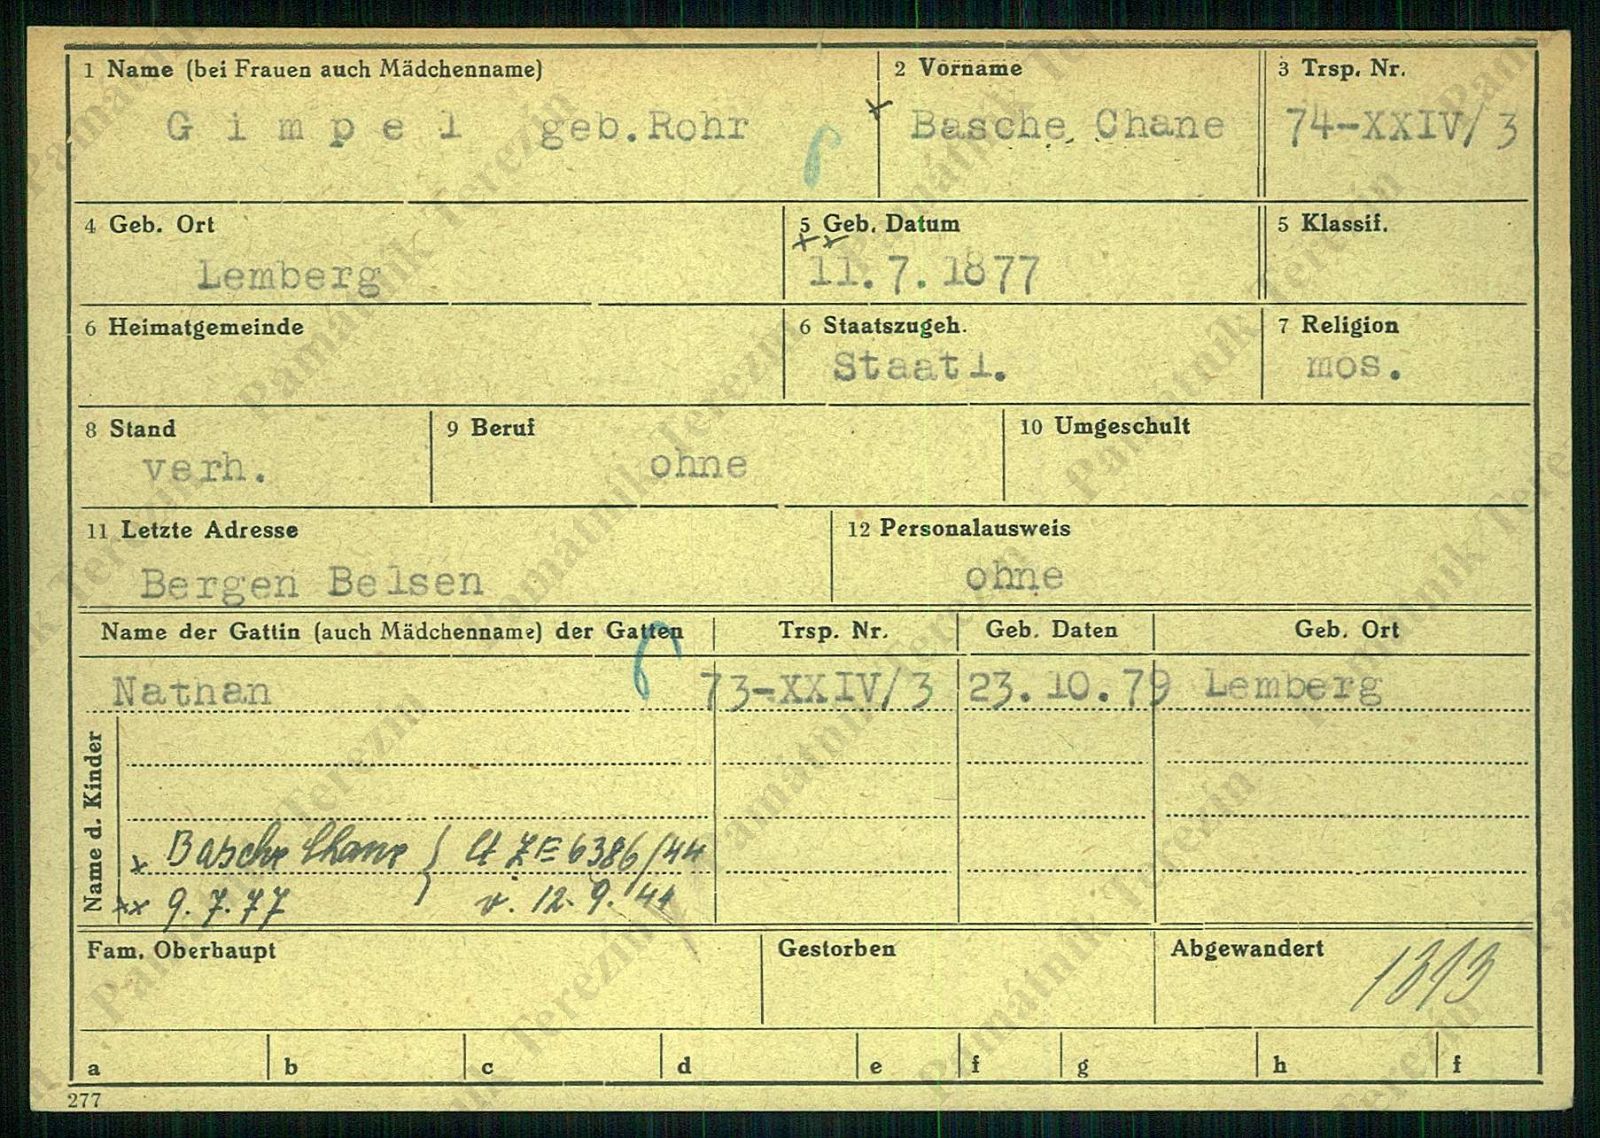 1 Name (bei Frauen auch Mädchenname)
G i m p e l geb.Rohr
2 Vorname
x Basche Chane
3 Trsp. Nr.
74-XXIV/3
4 Geb. Ort
Lemberg
5 Geb. Datum
xx
11.7.1877
5 Klassif.
6 Heimatgemeinde
6 Staatszugeh.
Staatl.
7 Religion
mos.
8 Stand
verh.
9 Beruf
ohne
10 Umgeschult
11 Letzte Adresse
Bergen Belsen
12 Personalausweis
ohne
Name der Gattin (auch Mädchenname) der Gatten Trsp. Nr. Geb. Daten Geb. Ort
Nathan 73-XXIV/3 23.10.79 Lemberg
Name d. Kinder
x Basche Chane } lt ZE 6386/44
xx 9.7.77 v. 12.9.44
Fam. Oberhaupt
Gestorben
Abgewandert
a b c d e f g h f
277
Památník Terezín